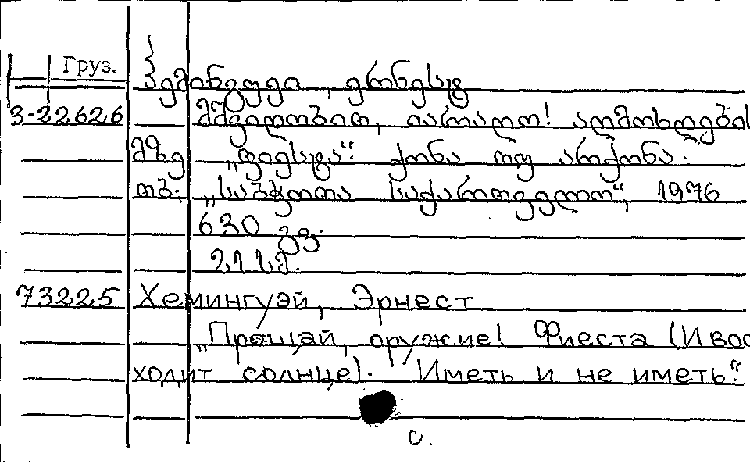 Груз.
ჰემინგუეი, ერნესტ
3-22626 მშვიდობით, იარაღო! აღმოხდების
მზე „ფიესტა“. ქონა თუ არქონა.
თბ. „საბჭოთა საქართველო“, 1976
630 გვ.
21 სმ.
73225 Хемингуэй, Эрнест
„Прощай, оружие! Фиеста (И вос
ходит солнце). Иметь и не иметь“.